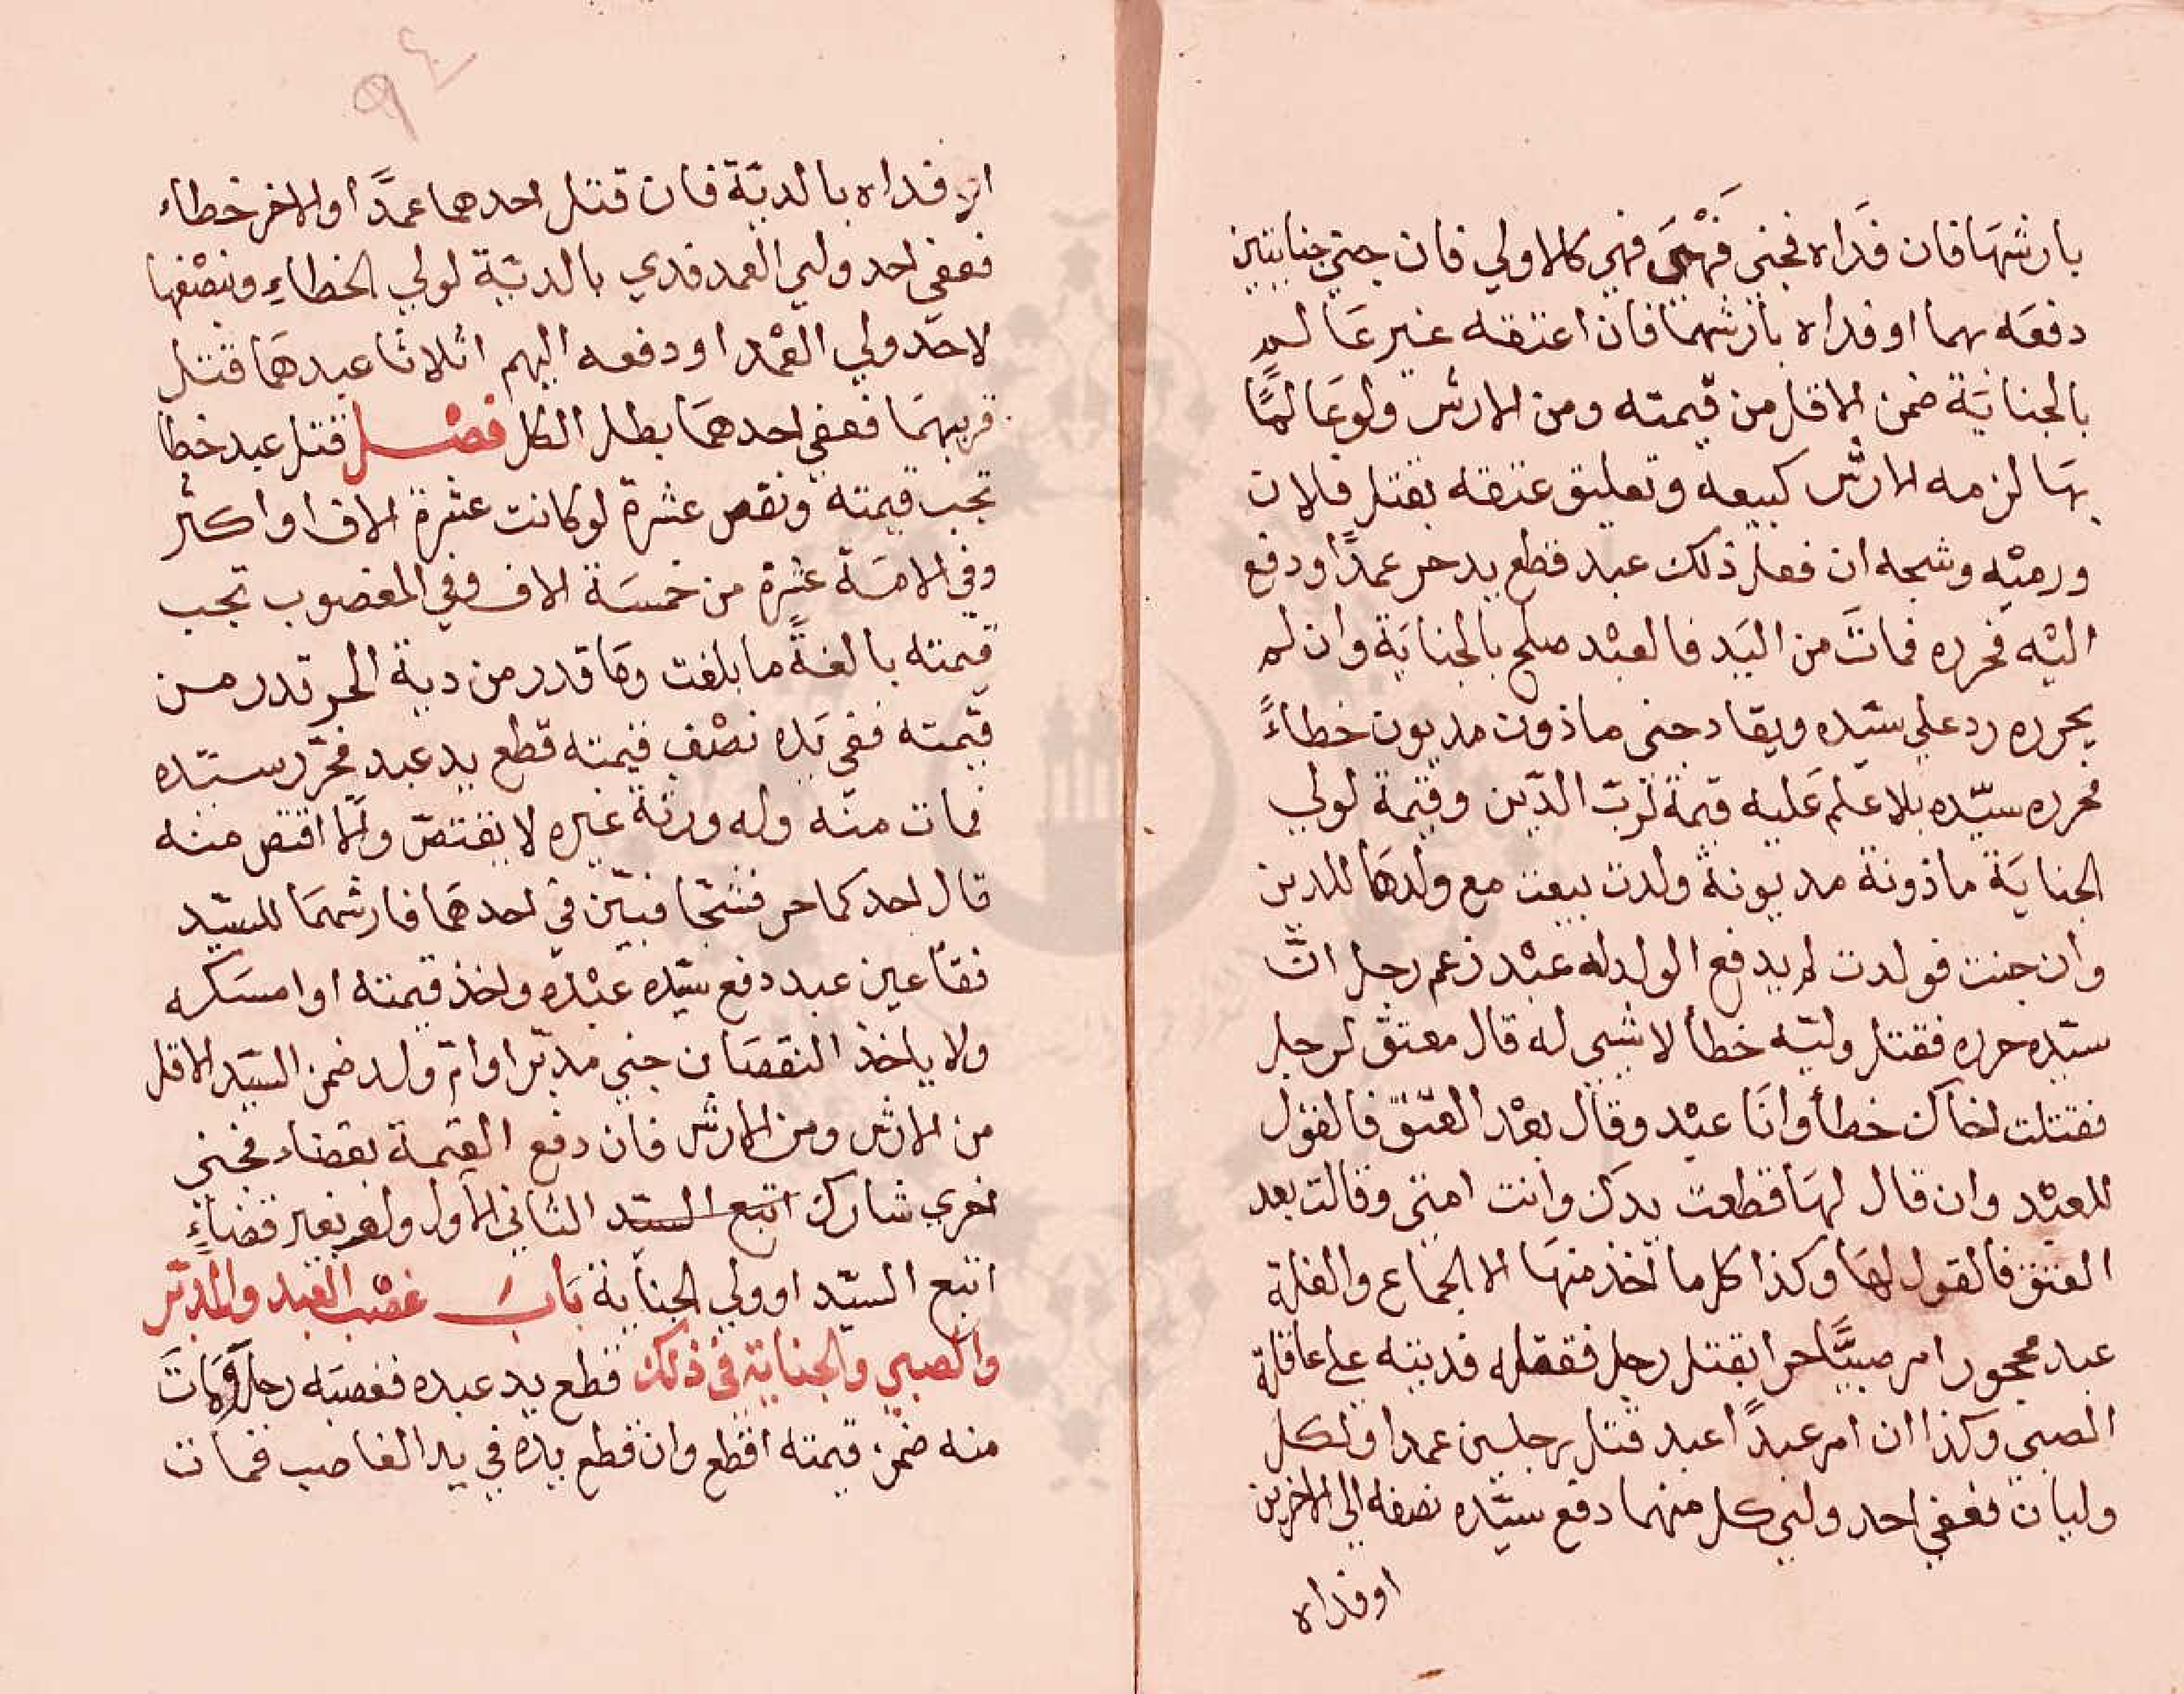 بارشهَا فان فَدَاه فجنى فَهْيَ فهي كالاولي فان جنى جنايتين
دفعَه بهما او فداه بارشهمَا فان اعتقه غير عَالم
بالجنايَة ضمن الاقل من قيمته ومن الارش ولو عَالمًا
بهَا لزمه الارش كبيعه وتعليق عتقه بقتل فلان
ورميْه وشجه ان فعل ذلك عبد قطع يد حر عمدًا ودفع
اليْه فحرره فماتَ من اليَد فالعبْد صلح بالجنايَة وان لم
يحرره رد علي سيّده ويقاد جنى ماذون مديون خطاءً
فحرره سيّده بلا علم عَليه قيمة لربّ الدّين وقيمة لولي
الجنايَة ماذونة مديونة ولدت بيعت مع ولدهَا للدين
وان جنت فولدت لم يدفع الولد له عبْد زعم رجل انّ
سيّده حرره فقتل وليّه خطأ لا شى له قال معتق لرجل
قتلت اخاك خطأ وانَا عبْد وقال بعْد العتق فالقول
للعبْد وان قال لهَا قطعت يدك وانت امتى وقالت بعد
العتق فالقول لهَا وكذا كل ما اخذ منهَا الا الجماع والغلة
عبد محجور امر صبيًّا حرا بقتل رجل فقتله فديته علي عاقلة
الصبي وكذا ان امر عبدًا عبد قتل رجلين عمدا ولكل
وليان فعفي احد وليي كل منهما دفع سيّده نصفه الي الاخرين
او فداه
او فداه بالديَة فان قتل احدهما عمدًا والاخر خطاء
فعفي احد وليي العمد فدي بالديّة لولي الخطاءِ وبنصْفها
لاحَد ولي العمْد او دفعه اليهم اثلاثا عبدهمَا قتل
قريبهمَا فعفي احدهمَا بطل الكل فصْل قتل عبد خطا
تجب قيمته ونقص عشرة لو كانت عشرة الاف او اكثر
وفي الامَة عشرة من خمسَة الاف وفي المغصوب تجب
قيمته بالغةً ما بلغت ومَا قدر من دية الحر قدر من
قيمته ففي يَده نصْف قيمته قطع يد عبد فحرّر سيّده
فمات منه وله ورثة غيره لا يقتصّ والّا اقتص منه
قال احدكما حر فشجّا فبيّن في احدهمَا فارشهمَا للسيّد
فقأ عين عبد دفع سيّده عبْده واخذ قيمته او امسَكه
ولا ياخذ النقصَان جني مدبّر او امّ ولد ضمن السيّد الاقل
من الارش ومن الارش فان دفع القيمة بقضاء فجنى
اخري شارك اتبع السيّد الثاني الاول ولو بغير قضاءٍ
اتبع السيّد او ولي الجنَايَة بَابُ غصْب العبد والمدبّر
والصبي والجناية في ذلك قطع يد عبده فغصبَه رجل ومَاتَ
منه ضمن قيمته اقطع وان قطع يده في يد الغاصب فمات